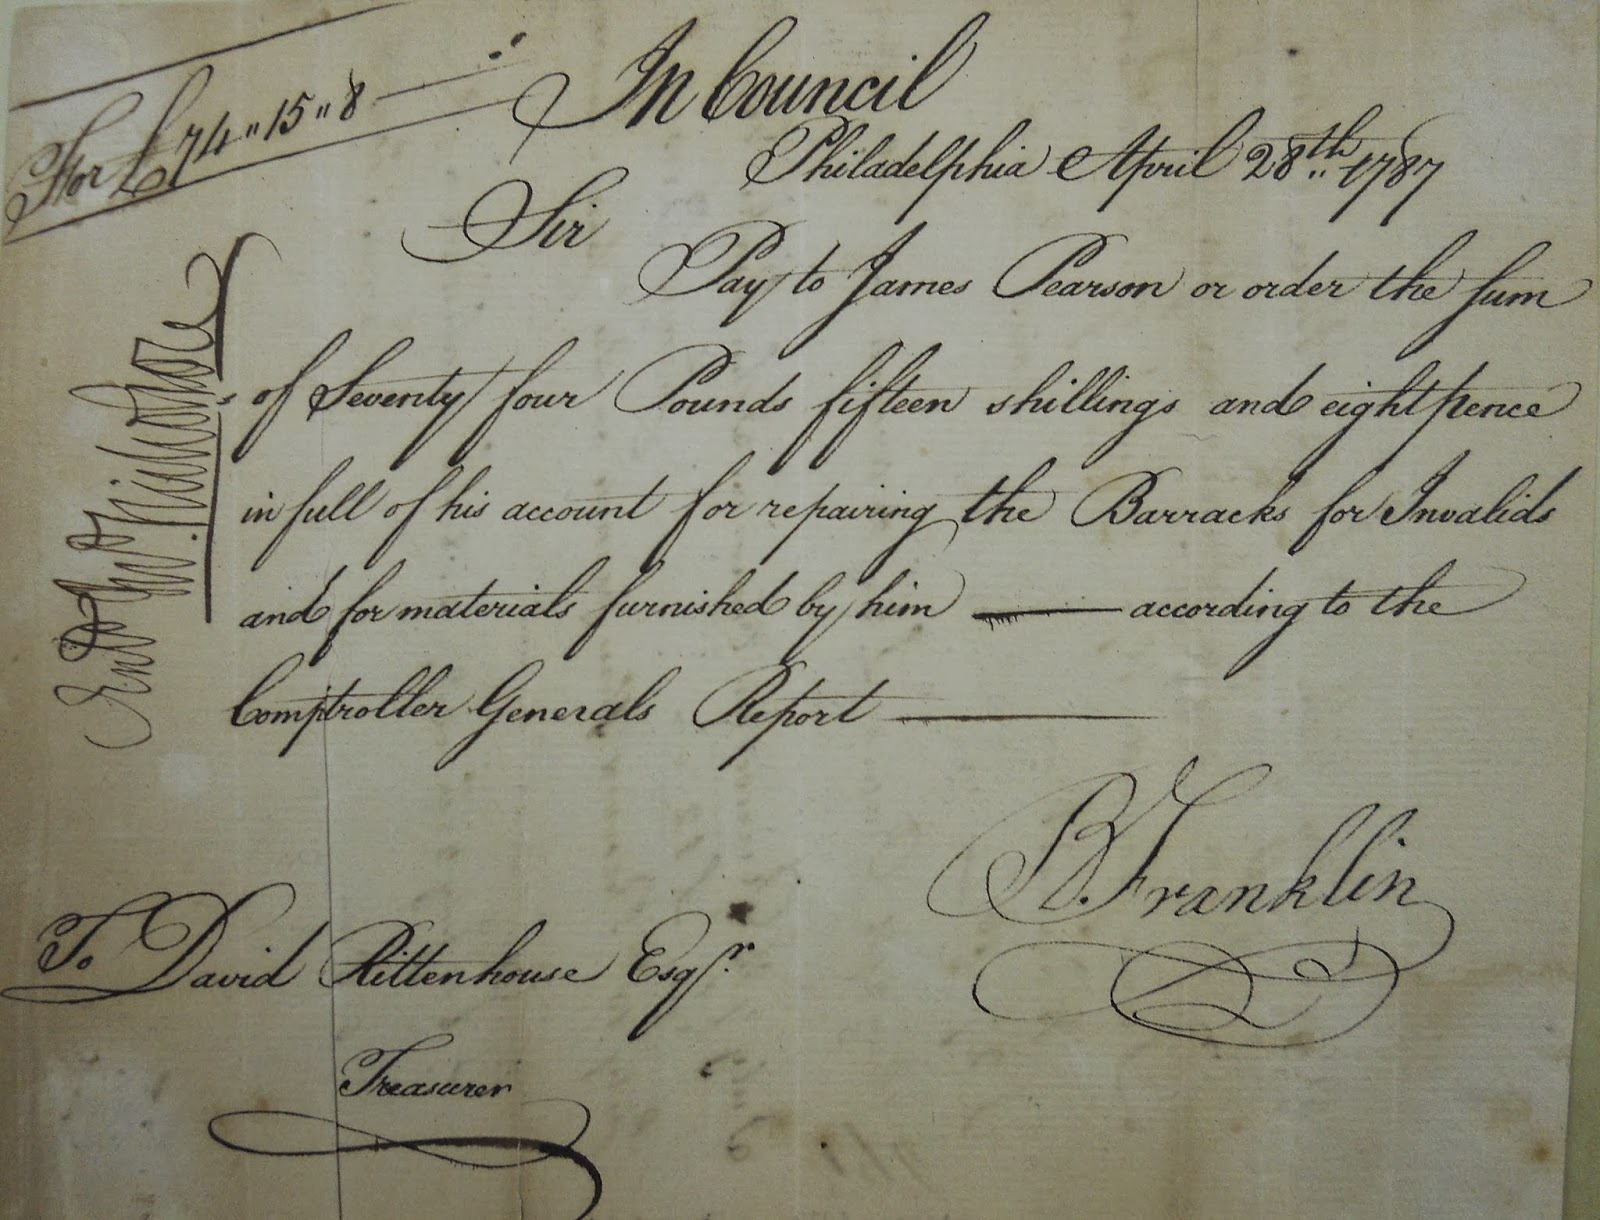 For £74"15"8
In Council
Philadelphia April 28th 1787
Sir
Pay to James Pearson or order the sum
of Seventy four Pounds fifteen shillings and eight pence
in full of his account for repairing the Barracks for Invalids
and for materials furnished by him — according to the
Comptroller Generals Report —
B. Franklin
To David Rittenhouse Esqr.
Treasurer
Entd Jno. Nicholson